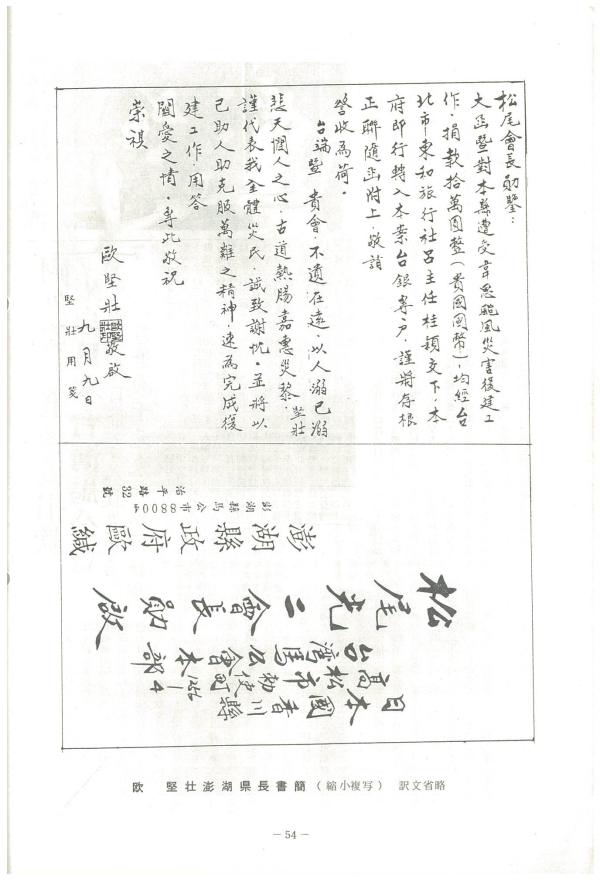 松尾會長勛鑒：
大函暨對本縣遭受韋恩颱風災害後建工
作，捐款拾萬圓整（貴國國幣），均經台
北市東和旅行社呂主任桂穎交下，本
府即行轉入本案台銀專戶，謹將存根
正聯隨函附上，敬請
詧收為荷。
台端暨 貴會，不遺在遠，以人溺己溺
悲天憫人之心，古道熱腸嘉惠災黎，堅壯
謹代表我全體災民，誠致謝忱，並將以
己助人助克服萬難之精神，速為完成復
建工作，用答
關愛之情，專此敬祝
崇祺
歐堅壯 敬啟
九月九日
堅壯用箋
日本國香川縣
高松市勅使町
台灣馬公會本部
松尾光二會長勛啟
澎湖縣政府歐緘
澎湖縣馬公市88004
治平路32號
欧 堅壮澎湖県長書簡（縮小複写） 訳文省略
— 54 —